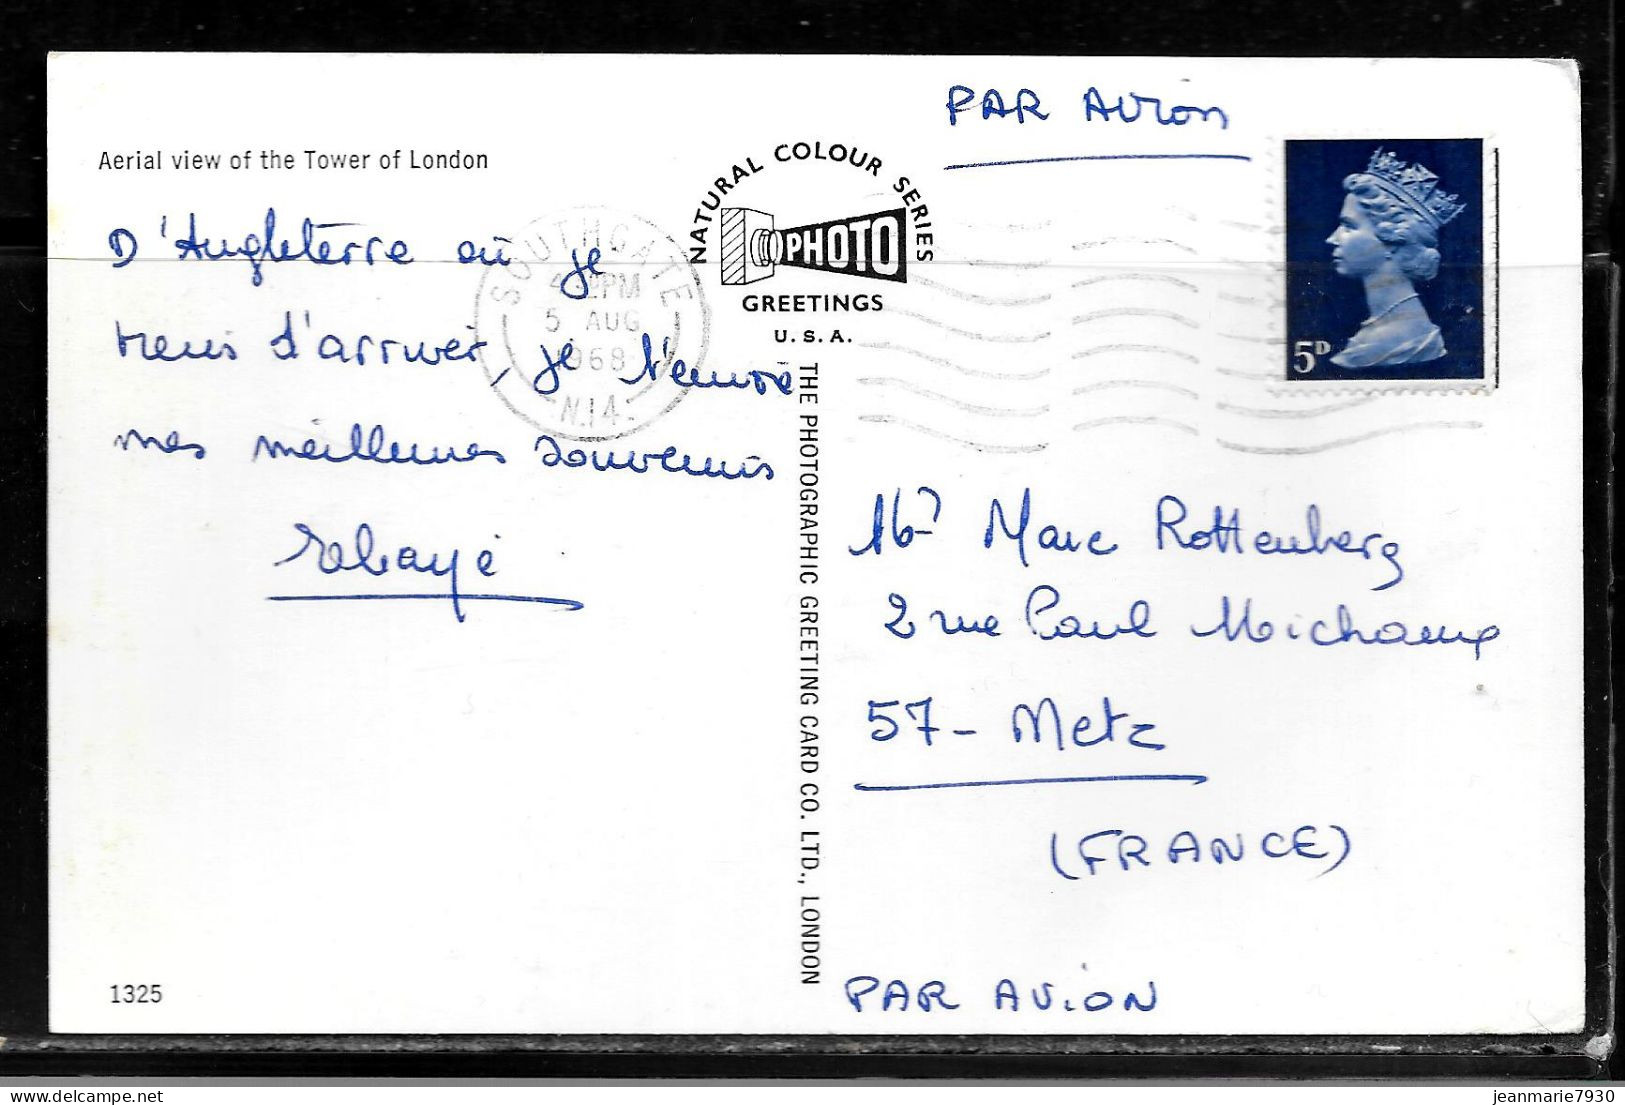 Aerial view of the Tower of London
D'Angleterre où je
viens d'arriver, je t'envoie
mes meilleures souvenirs
NATURAL COLOUR SERIES
PHOTO
GREETINGS
U.S.A.
THE PHOTOGRAPHIC GREETING CARD CO. LTD., LONDON
SOUTHGATE
PM
5 AUG
1968
N.14.
PAR AVION
5D
Marc Rottenberg
2 rue Paul Michaux
57 - Metz
(FRANCE)
PAR AVION
1325
jeanmarie7930